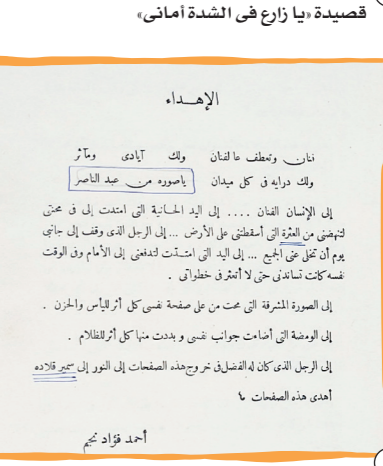 قصيدة «يا زارع فى الشدة أمانى»
الإهداء
فنان وتعطف عالفنان ولك أيادى ومآثر
ولك درايه فى كل ميدان ياصوره من عبد الناصر
إلى الإنسان الفنان .... إلى اليد الحانية التى امتدت إلى فى محنتى
لتنهضنى من العثرة التى أسقطتنى على الأرض ... إلى الرجل الذى وقف إلى جانبى
يوم أن تخلى عنى الجميع ... إلى اليد التى امتدت لتدفعنى إلى الأمام وفى الوقت
نفسه كانت تساندنى حتى لا أتعثر فى خطواتى .
إلى الصورة المشرقة التى محت من على صفحة نفسى كل أثر لليأس والحزن .
إلى الومضة التى أضاءت جوانب نفسى وبددت منها كل أثر للظلام .
إلى الرجل الذى كان له الفضل فى خروج هذه الصفحات إلى النور إلى سمير قلاده
أهدى هذه الصفحات
أحمد فؤاد نجم